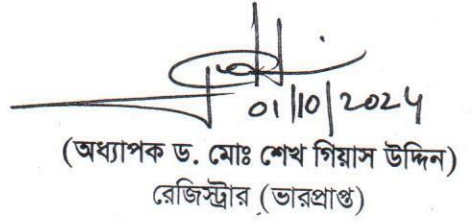 01/10/2024
(অধ্যাপক ড. মোঃ শেখ গিয়াস উদ্দিন)
রেজিস্ট্রার (ভারপ্রাপ্ত)